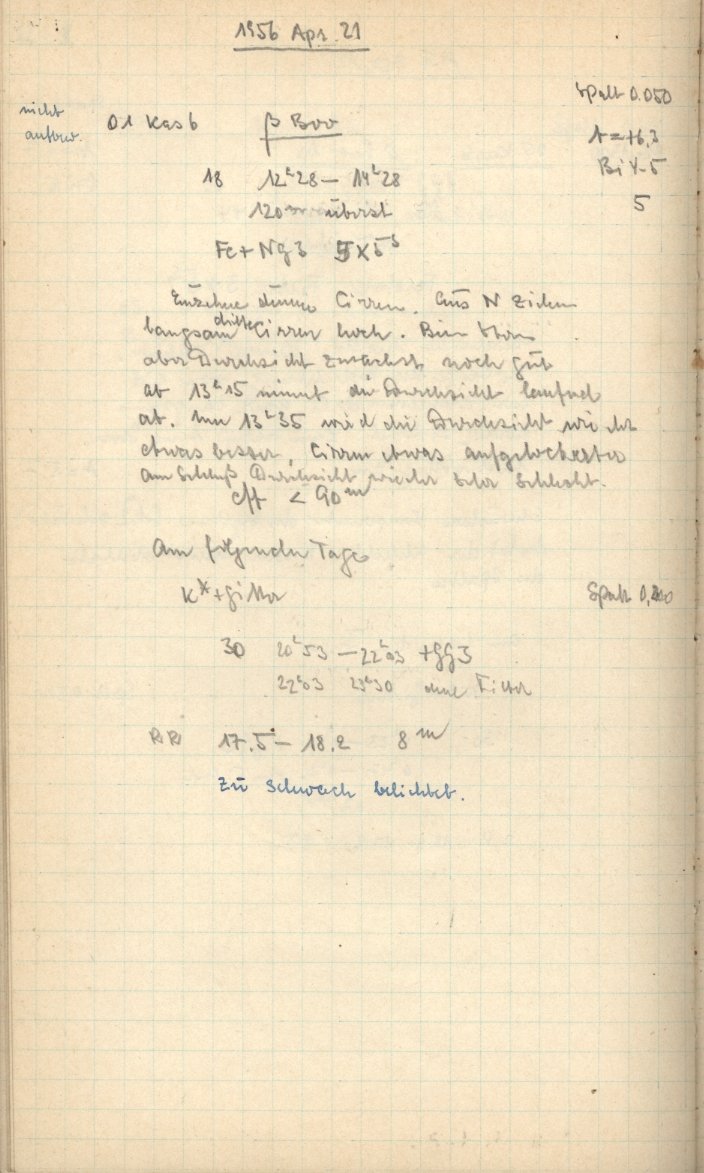 1956 Apr. 21
Spalt 0.050
nicht
01 Kas 6 β Boo
t = +6,3
18 12h28 – 14h28
5
120m überst
Fe + Ng3 5x5s
Einzelne dünne Cirren. Aus N ziehen
langsam dichte Cirren hoch. Beim Stern
aber Durchsicht zunächst noch gut
ab 13h15 nimmt die Durchsicht laufend
ab. Um 13h35 wird die Durchsicht wieder
etwas besser, Cirren etwas aufgelockerter
am Schluß Durchsicht wieder sehr schlecht.
eff < 90m
Am folgenden Tage
K* + Gitter
Spalt
30 20h53 – 22h03 + GG3
22h03 23h30 ohne Filter
17.5 – 18.2 8m
Zu schwach belichtet.